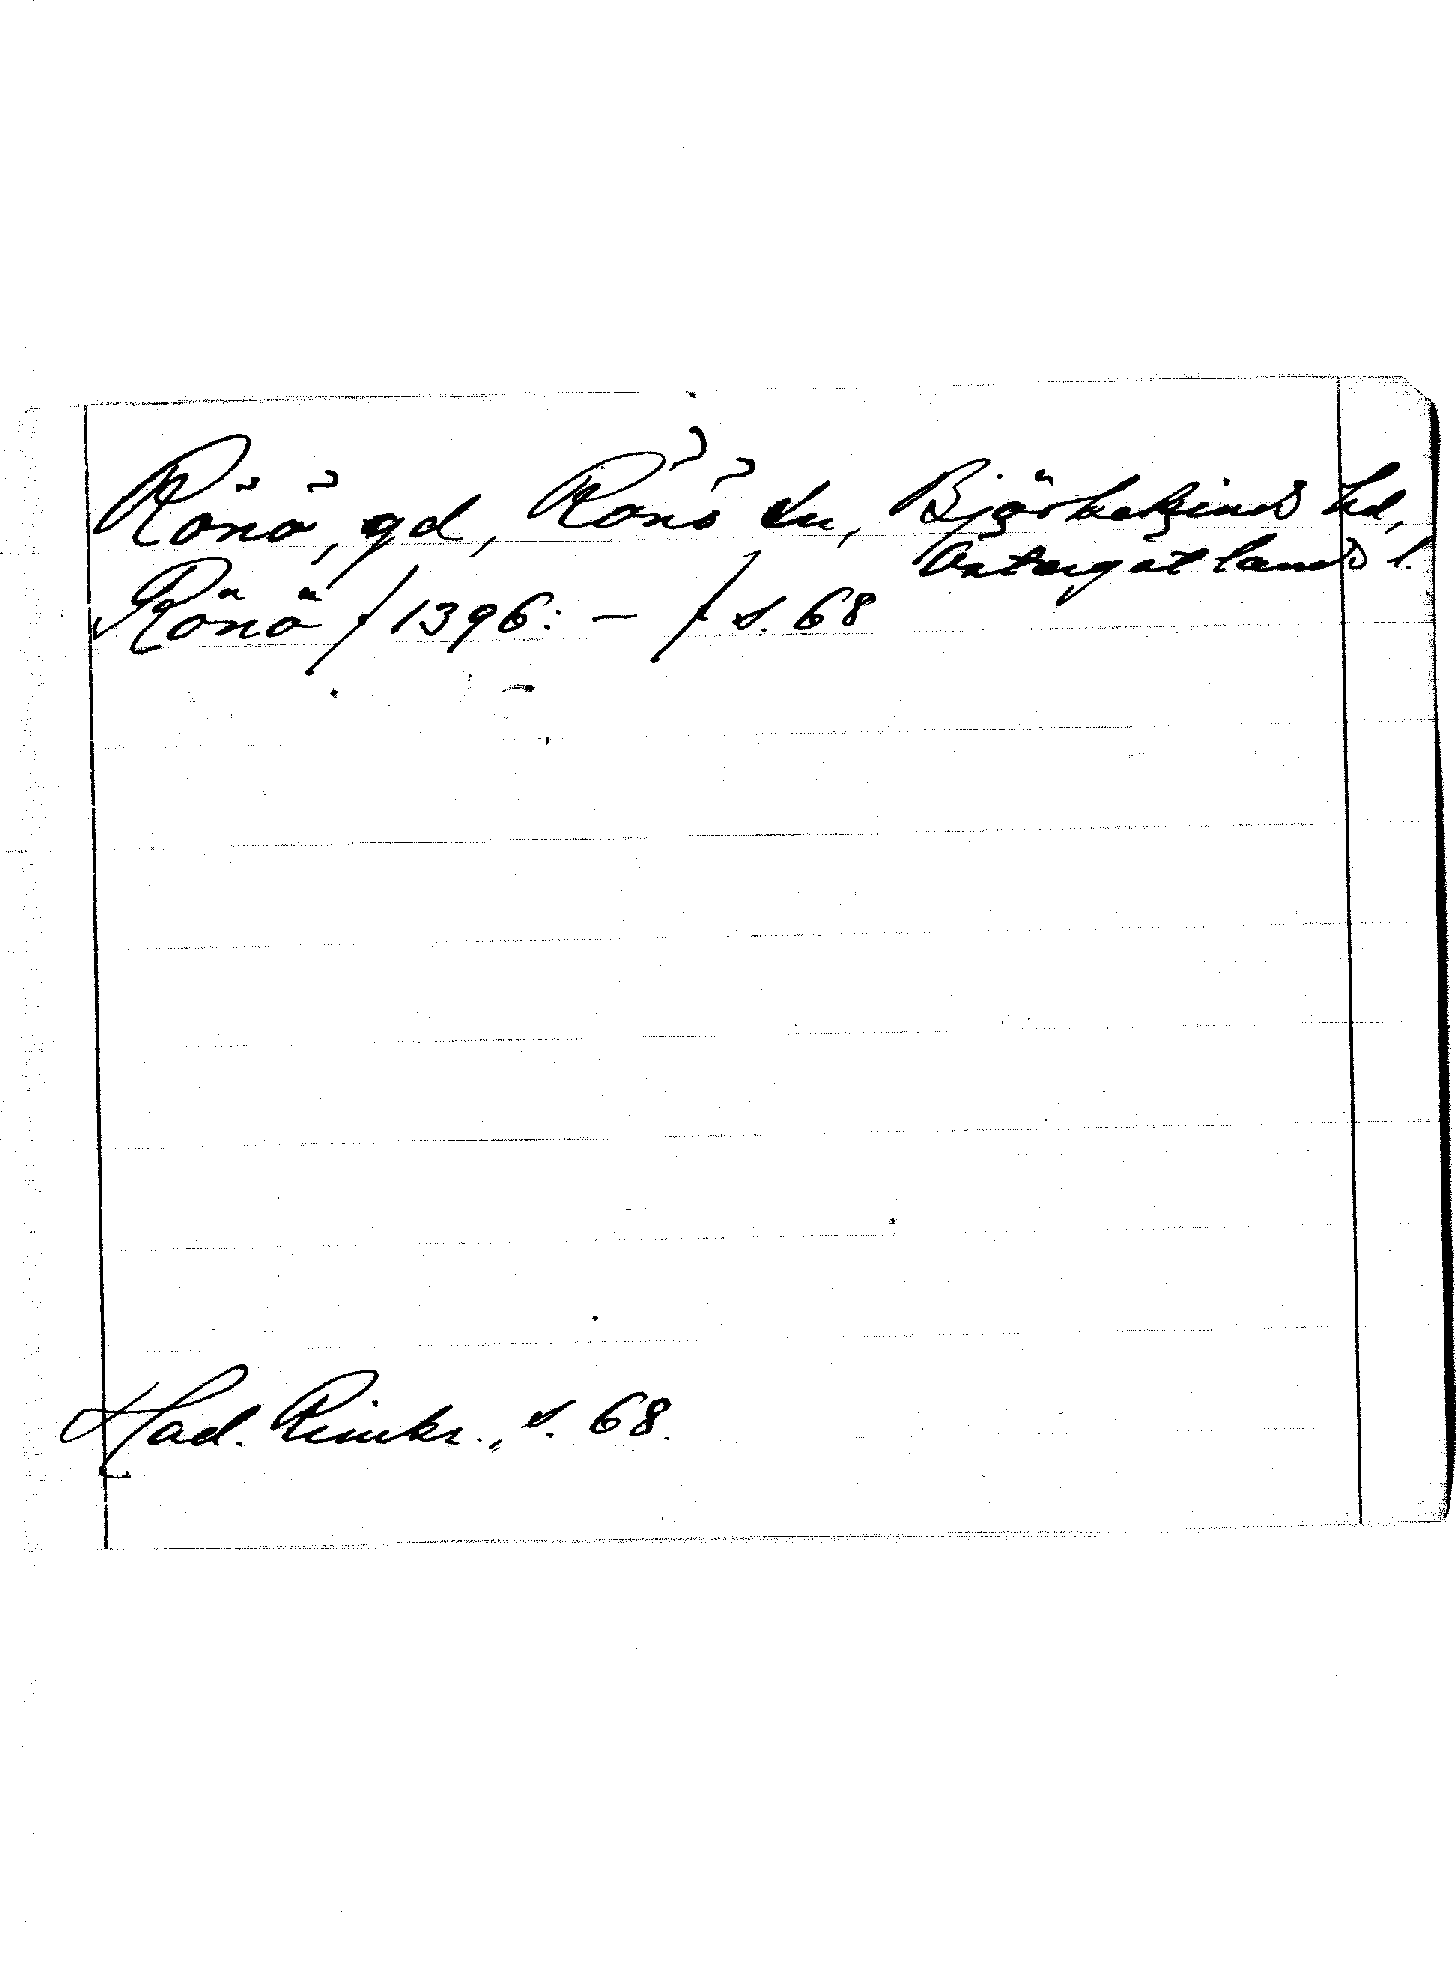 Rönö, gd, Rönö sn, Björkekinds hd,
Östergötlands l.
Rönö / 1396: – / s. 68
Had. Rimkr., s. 68.